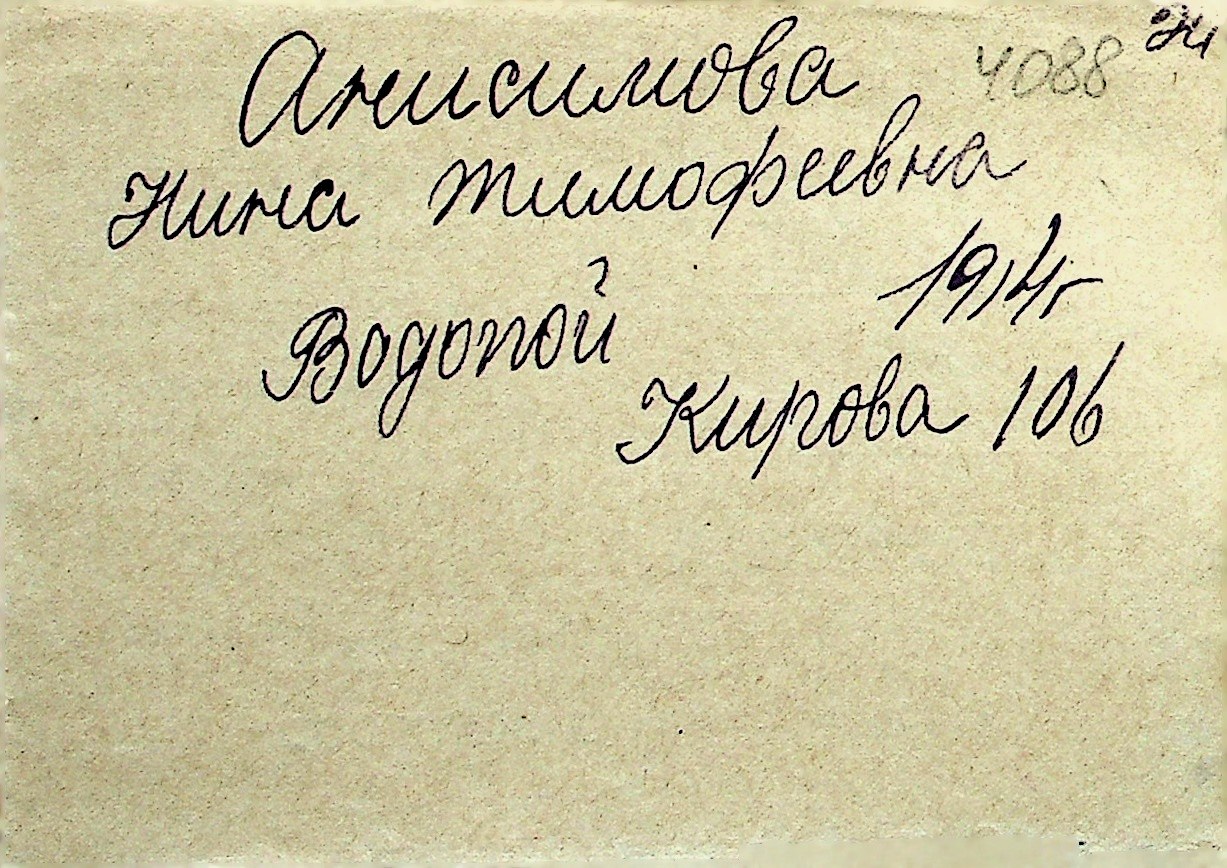 Анисимова 4088
Нина Тимофеевна
1914г
Водопой
Кирова 106